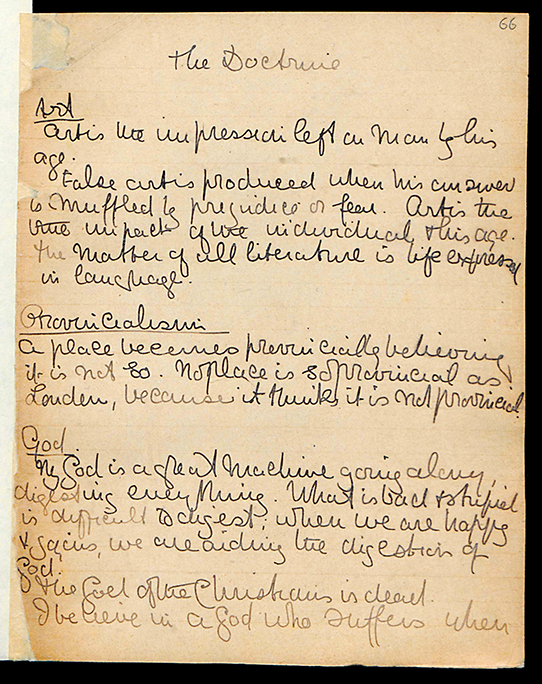 66
The Doctrine
Art
Art is the impression left on Man by his
age.
False art is produced when his answer
is muffled by prejudice or fear. Art is the
impact of the individual & his age.
The Matter of all literature is life expressed
in language.
Provincialism
A place becomes provincial by believing
it is not so. No place is so provincial as
London, because it thinks it is not provincial.
God
My God is a great Machine going along,
digesting everything. What is bad & stupid
is difficult to digest; when we are happy
& we are aiding the digestion of
God.
The God of the Christians is dead.
I believe in a God who suffers when